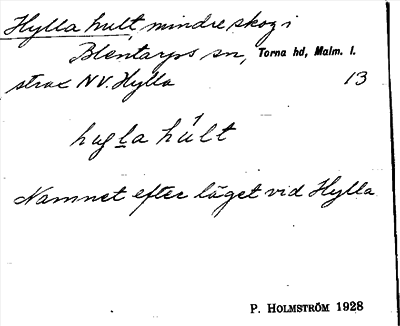 Hylla hult, mindre skog i
Blentarps sn, Torna hd, Malm. l.
strax NV. Hylla 13
hyl̲a húlt
Namnet efter läget vid Hylla
P. HOLMSTRÖM 1928